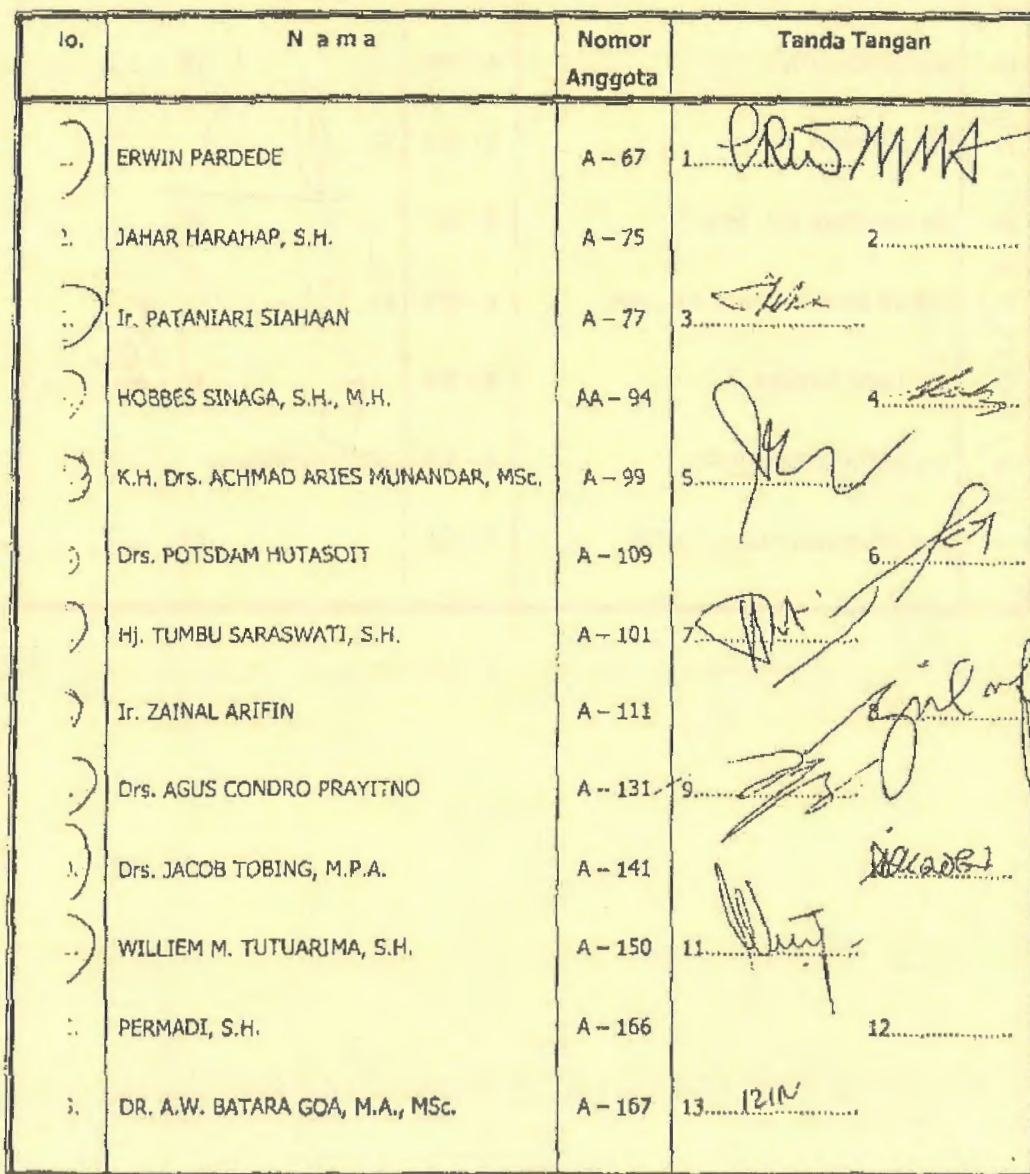 lo. N a m a Nomor Anggota Tanda Tangan
ERWIN PARDEDE A – 67 1
2. JAHAR HARAHAP, S.H. A – 75 2
Ir. PATANIARI SIAHAAN A – 77 3
HOBBES SINAGA, S.H., M.H. AA – 94 4
K.H. Drs. ACHMAD ARIES MUNANDAR, MSc. A – 99 5
Drs. POTSDAM HUTASOIT A – 109 6
Hj. TUMBU SARASWATI, S.H. A – 101 7
Ir. ZAINAL ARIFIN A – 111 8
Drs. AGUS CONDRO PRAYITNO A – 131 9
Drs. JACOB TOBING, M.P.A. A – 141
WILLIEM M. TUTUARIMA, S.H. A – 150 11
PERMADI, S.H. A – 166 12
DR. A.W. BATARA GOA, M.A., MSc. A – 167 13 IZIN